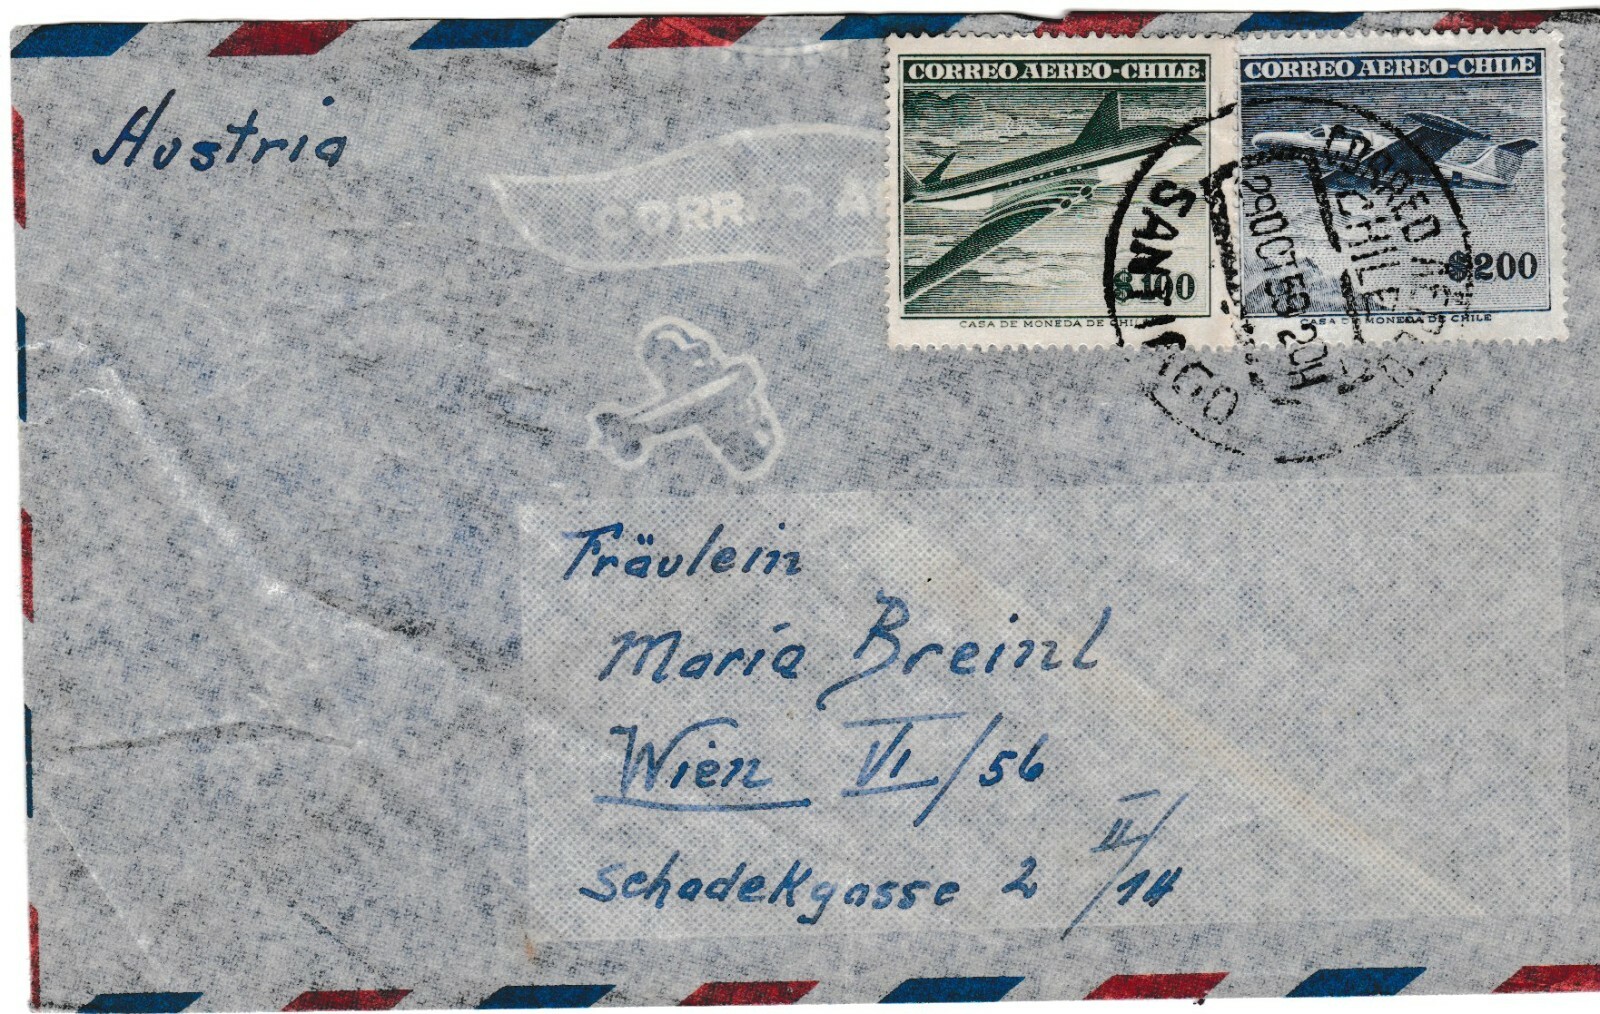 Austria
CORREO AE
CORREO AEREO-CHILE
$100
CASA DE MONEDA DE CHILE
CORREO AEREO-CHILE
$200
CASA DE MONEDA DE CHILE
CORREO AEREO
CHILE
29 OCT 59 20H
SANTIAGO
Fräulein
Maria Breinl
Wien VI/56
Schadekgasse 2 II/14